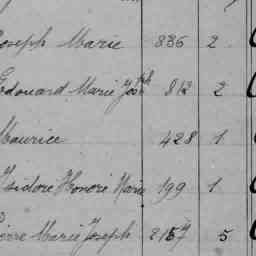 Joseph Marie 836 2
Edouard Marie Jos^ph 812 2
Maurice 428 1
Isidore Honoré Marie 199 1
Pierre Marie Joseph 2157 5